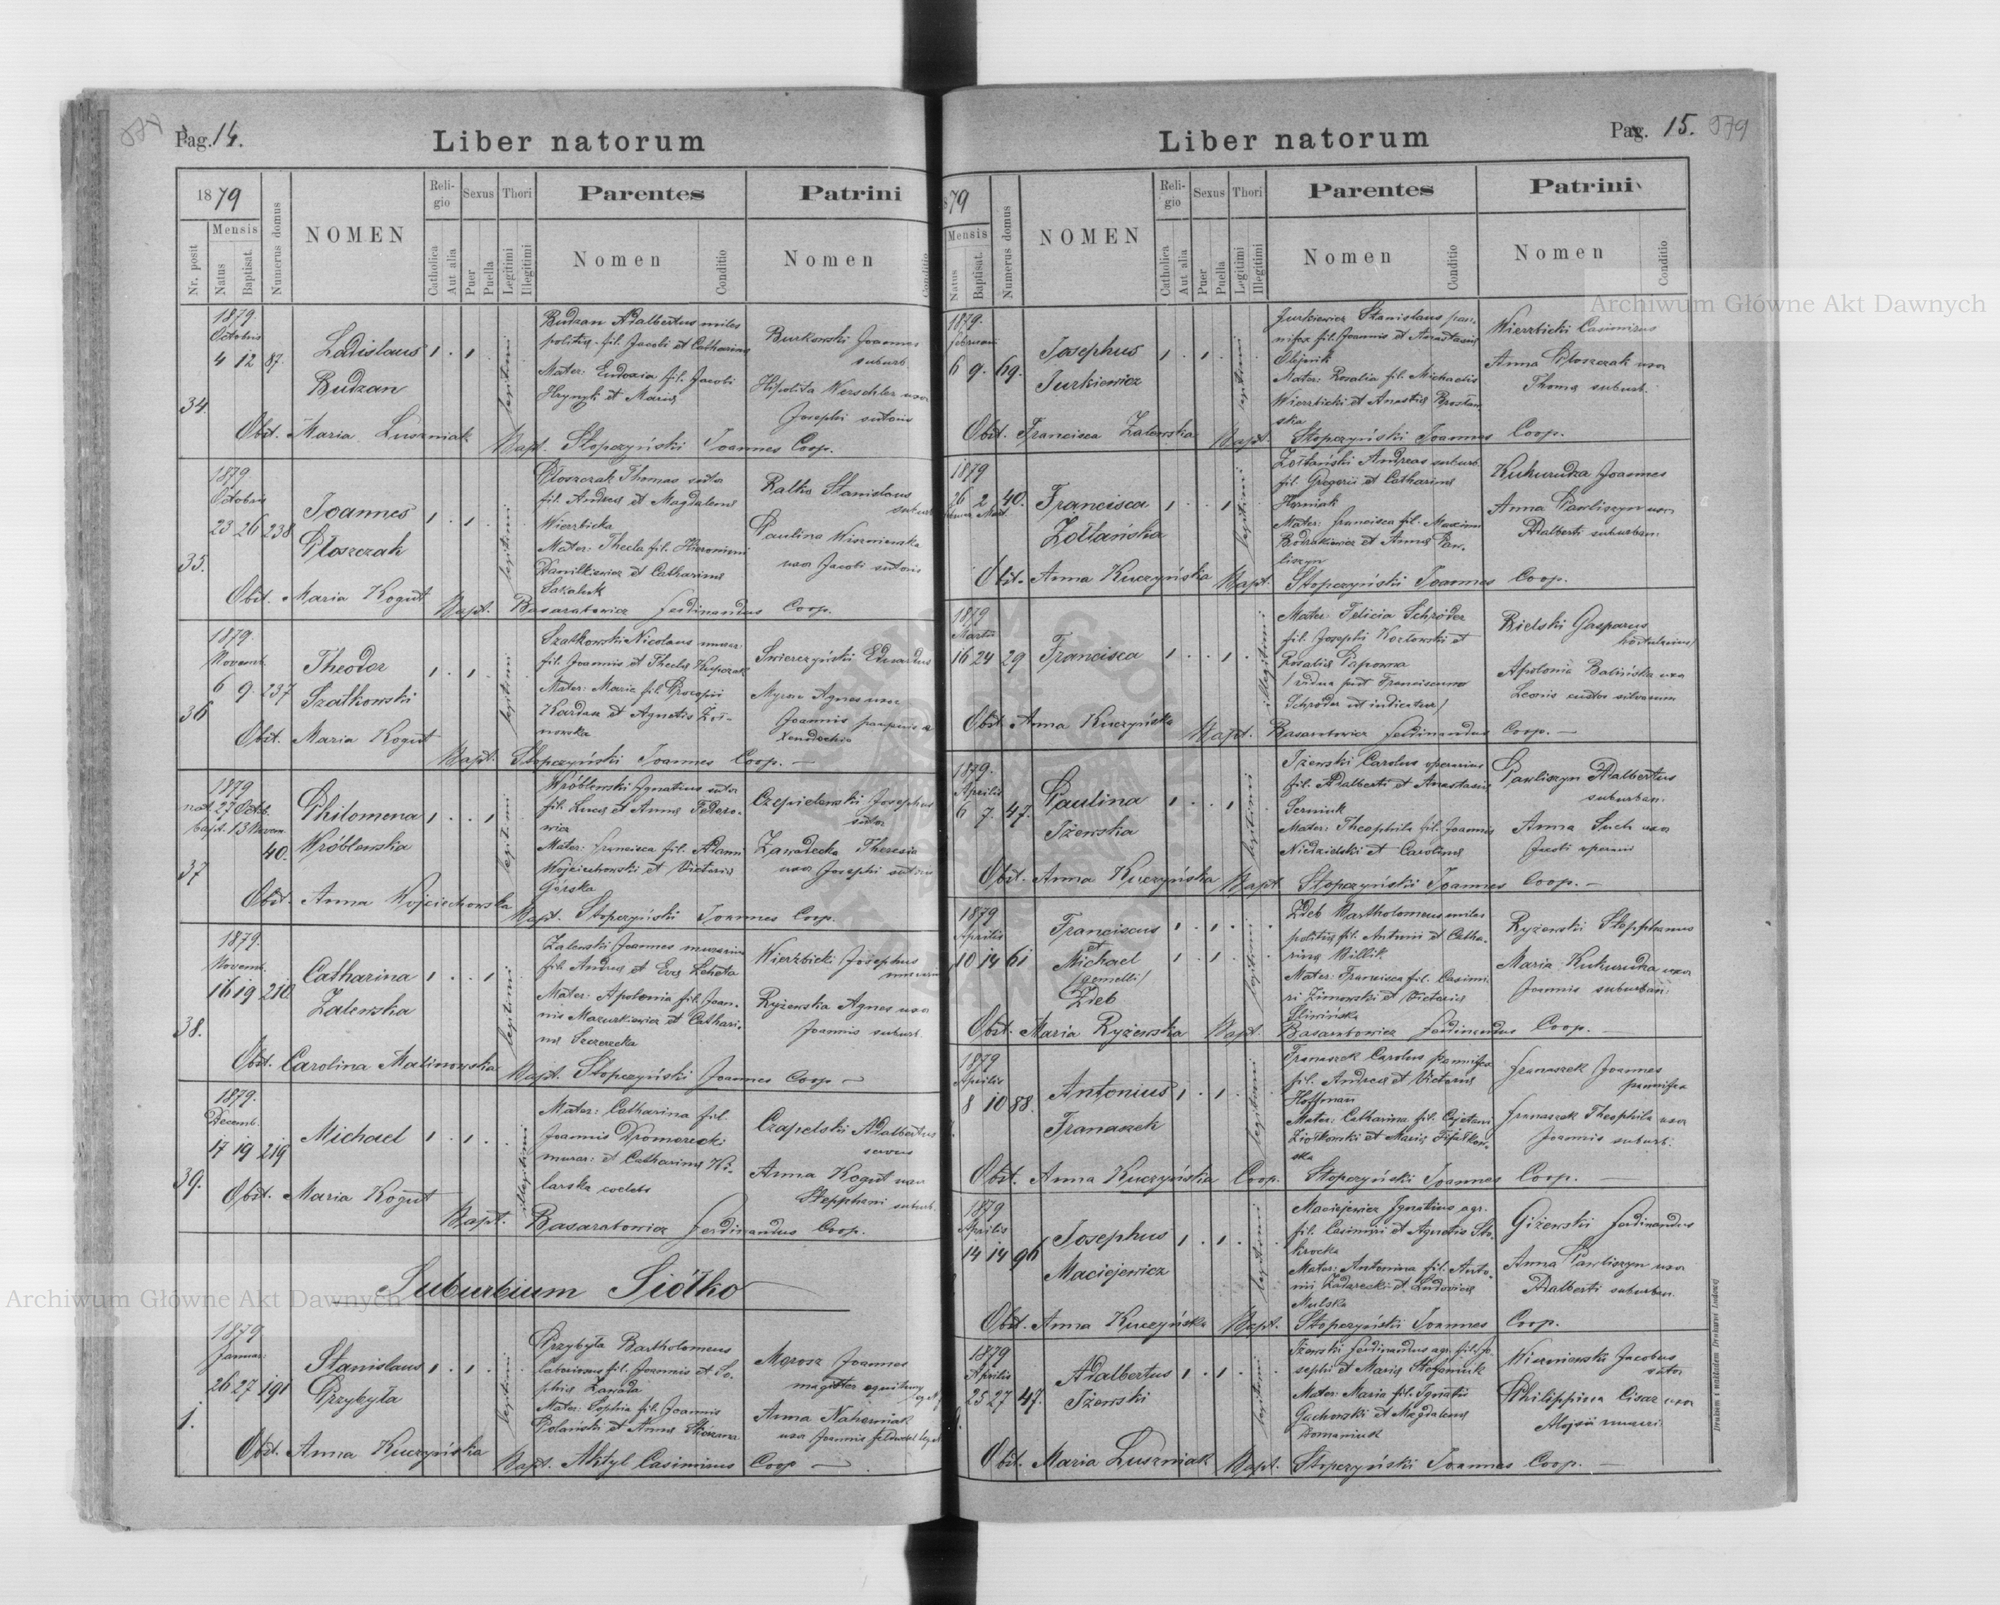 Pag. 14.
Liber natorum
1879
Nr. posit
Mensis
Natus
Baptisat.
Numerus domus
NOMEN
Religio
Catholica
Aut alia
Sexus
Puer
Puella
Thori
Legitimi
Illegitimi
Parentes
Nomen
Conditio
Patrini
Nomen
Conditio
34.
1879
Octobris
4 12 87.
Ladislaus
Budzan
legitimi
Budzan Adalbertus miles
politus fil. Jacobi et Catharina
Mater: Eudoxia fil. Jacobi
Hrynyk et Maria
Burkowski Joannes
suburb
Hipolita Werschler uxor
Josephi sutoris
Obst. Maria Luszniak
Bapt. Stopczyński Joannes Coop.
35.
1879
Octobris
23 26 238
Joannes
Płoszczak
legitimi
Płoszczak Thomas sutor
fil. Andrea et Magdalena
Wierzbicka
Mater: Thecla fil. Hieronimi
Daniłkiewicz et Catharina
Sakaluk
Ralko Stanislaus
suburb
Paulina Wiszniewska
uxor Jacobi sutoris
Obst. Maria Kogut
Bapt. Basarabowicz Ferdinandus Coop.
36
1879.
Novemb.
6 9. 237
Theodor
Szatkowski
legitimi
Szatkowski Nicolaus murar
fil. Joannis et Thecla Kupczak
Mater: Maria fil. Procopii
Kardan et Agnetis
Swierczyński Eduardus
Agnes uxor
Joannis
Xenodochio
Obst. Maria Kogut
Bapt. Stopczyński Joannes Coop. —
37
1879
nat. 27 Octob.
bapt. 13 Novem.
40.
Philomena
Wróblewska
legitimi
Wróblewski Ignatius sutor
fil. Luca et Anna Fedoro-
wicz
Mater: Francisca fil. Adami
Wojciechowski et Victoria
Górska
Czepielowski Josephus
sutor
Zawadecka Theresia
uxor Josephi sutoris
Obst. Anna Wojciechowska
Bapt. Stopczyński Joannes Coop.
38.
1879.
Novemb.
16 19 210
Catharina
Zalewska
legitimi
Zalewski Joannes murarius
fil. Andrea et Eva
Mater: Apolonia fil. Joan-
nis Mazurkiewicz et Cathari-
na Szczerecka
Wierzbicki Josephus
murarius
Ryżewska Agnes uxor
Joannis suburb.
Obst. Carolina Malinowska
Bapt. Stopczyński Joannes Coop —
39.
1879.
Decemb.
17 19 219
Michael
illegitimi
Mater: Catharina fil.
Joannis Dromerecki
murar: et Catharina Ki-
larska coelebs
Czapelski Adalbertus
servus
Anna Kogut uxor
Stepphani suburb.
Obst. Maria Kogut
Bapt. Basarabowicz Ferdinandus Coop.
Suburbium Siółko
1.
1879
Januar.
26 27 191
Stanislaus
Przybyła
legitimi
Przybyła Bartholomeus
fil. Joannis et So-
phia Zawada
Mater: Sophia fil. Joannis
Polański et Anna
Morosz Joannes
magister
Anna Naherniak
uxor Joannis
Obst. Anna Kuczyńska
Bapt. Aktyl Casimirus Coop —
Pag. 15. 579
Liber natorum
79
Mensis
Natus
Baptisat.
Numerus domus
NOMEN
Religio
Catholica
Aut alia
Sexus
Puer
Puella
Thori
Legitimi
Illegitimi
Parentes
Nomen
Conditio
Patrini
Nomen
Conditio
1879.
Februari
6 9. 69.
Josephus
Jurkiewicz
legitimi
Jurkiewicz Stanislaus pan-
nifex fil. Joannis et Anastasia
Olejnik
Mater: Rosalia fil. Michaelis
Wierzbicki et Anastia
ska
Wierzbicki Casimirus
Anna Płoszczak uxor
Thoma suburb.
Obst. Francisca Zalewska
Bapt. Stopczyński Joannes Coop.
1879
26 2 40.
Mart.
Francisca
Zołtańska
legitimi
Zołtański Andreas suburb.
fil. Gregorii et Catharina
Mater: Francisca fil. Maximi
Bodrakiewicz et Anna Paw-
liszyn
Kukurudza Joannes
Anna Pawliszyn uxor
Adalberti suburban.
Obst. Anna Kuczyńska
Bapt. Stopczyński Joannes Coop.
1879
Martii
16 24 29
Francisca
illegitimi
Mater Felicia Schröder
fil. Josephi Kozłowski et
Rosalia
/vidua post Franciscum
Schröder ut indicatur/
Bielski Gasparus
Apolonia Balińska uxor
Leonis custos silvarum
Obst. Anna Kuczyńska
Bapt. Basarabowicz Ferdinandus Coop. —
1879.
Aprilis
6 7. 47.
Paulina
Iżewska
legitimi
Iżewski Carolus operarius
fil. Adalberti et Anastasia
Serniuk
Mater: Theophila fil. Joannis
Niedzielski et Carolina
Pawliszyn Adalbertus
suburban.
Anna Such uxor
Justi operarii
Obst. Anna Kuczyńska
Bapt. Stopczyński Joannes Coop. —
1879
Aprilis
10 14 61
Franciscus
et
Michael
/gemelli/
Zieb
legitimi
Zieb Bartholomeus miles
politus fil. Antonii et Catha-
rina Willik
Mater: Francisca fil. Casimi-
ri Zimowski et Victoria
Sliwińska
Ryżewski Stepphanus
Maria Kukurudza uxor
Joannis suburban:
Obst. Maria Ryżewska
Bapt. Basarabowicz Ferdinandus Coop. —
1879
Aprilis
8 10 88.
Antonius
Franaszek
legitimi
Franaszek Carolus pannifex
fil. Andrea et Victoria
Hoffman
Mater: Catharina fil. Cajetani
Ziołkowski et Maria Fijałkow-
ska
Franaszek Joannes
pannifex
Franaszek Theophila uxor
Joannis suburb.
Obst. Anna Kuczyńska
Coop. Stopczyński Joannes Coop. —
1879
Aprilis
14 14 96
Josephus
Maciejewicz
legitimi
Maciejewicz Ignatius agr.
fil. Casimiri et Agnetis Sto-
krocka
Mater: Antonina fil. Anto-
nii et Ludovica
Mulska
Giżewski Ferdinandus
Anna Pawliszyn uxor
Adalberti suburban.
Obst. Anna Kuczyńska
Bapt. Stopczyński Joannes Coop.
1879
Aprilis
25 27 47.
Adalbertus
Iżewski
legitimi
Iżewski Ferdinandus agr. fil. Jo-
sephi et Maria Stefaniuk
Mater: Maria fil. Ignatii
Guchowski et Magdalena
Romaniuk
Wiszniewski Jacobus
sutor
Philippina Cisar uxor
Alojsii murari
Obst. Maria Luszniak
Bapt. Stopczyński Joannes Coop. —
Drukiem i nakładem Drukarni Ludowej
Archiwum Główne Akt Dawnych
Archiwum Główne Akt Dawnych